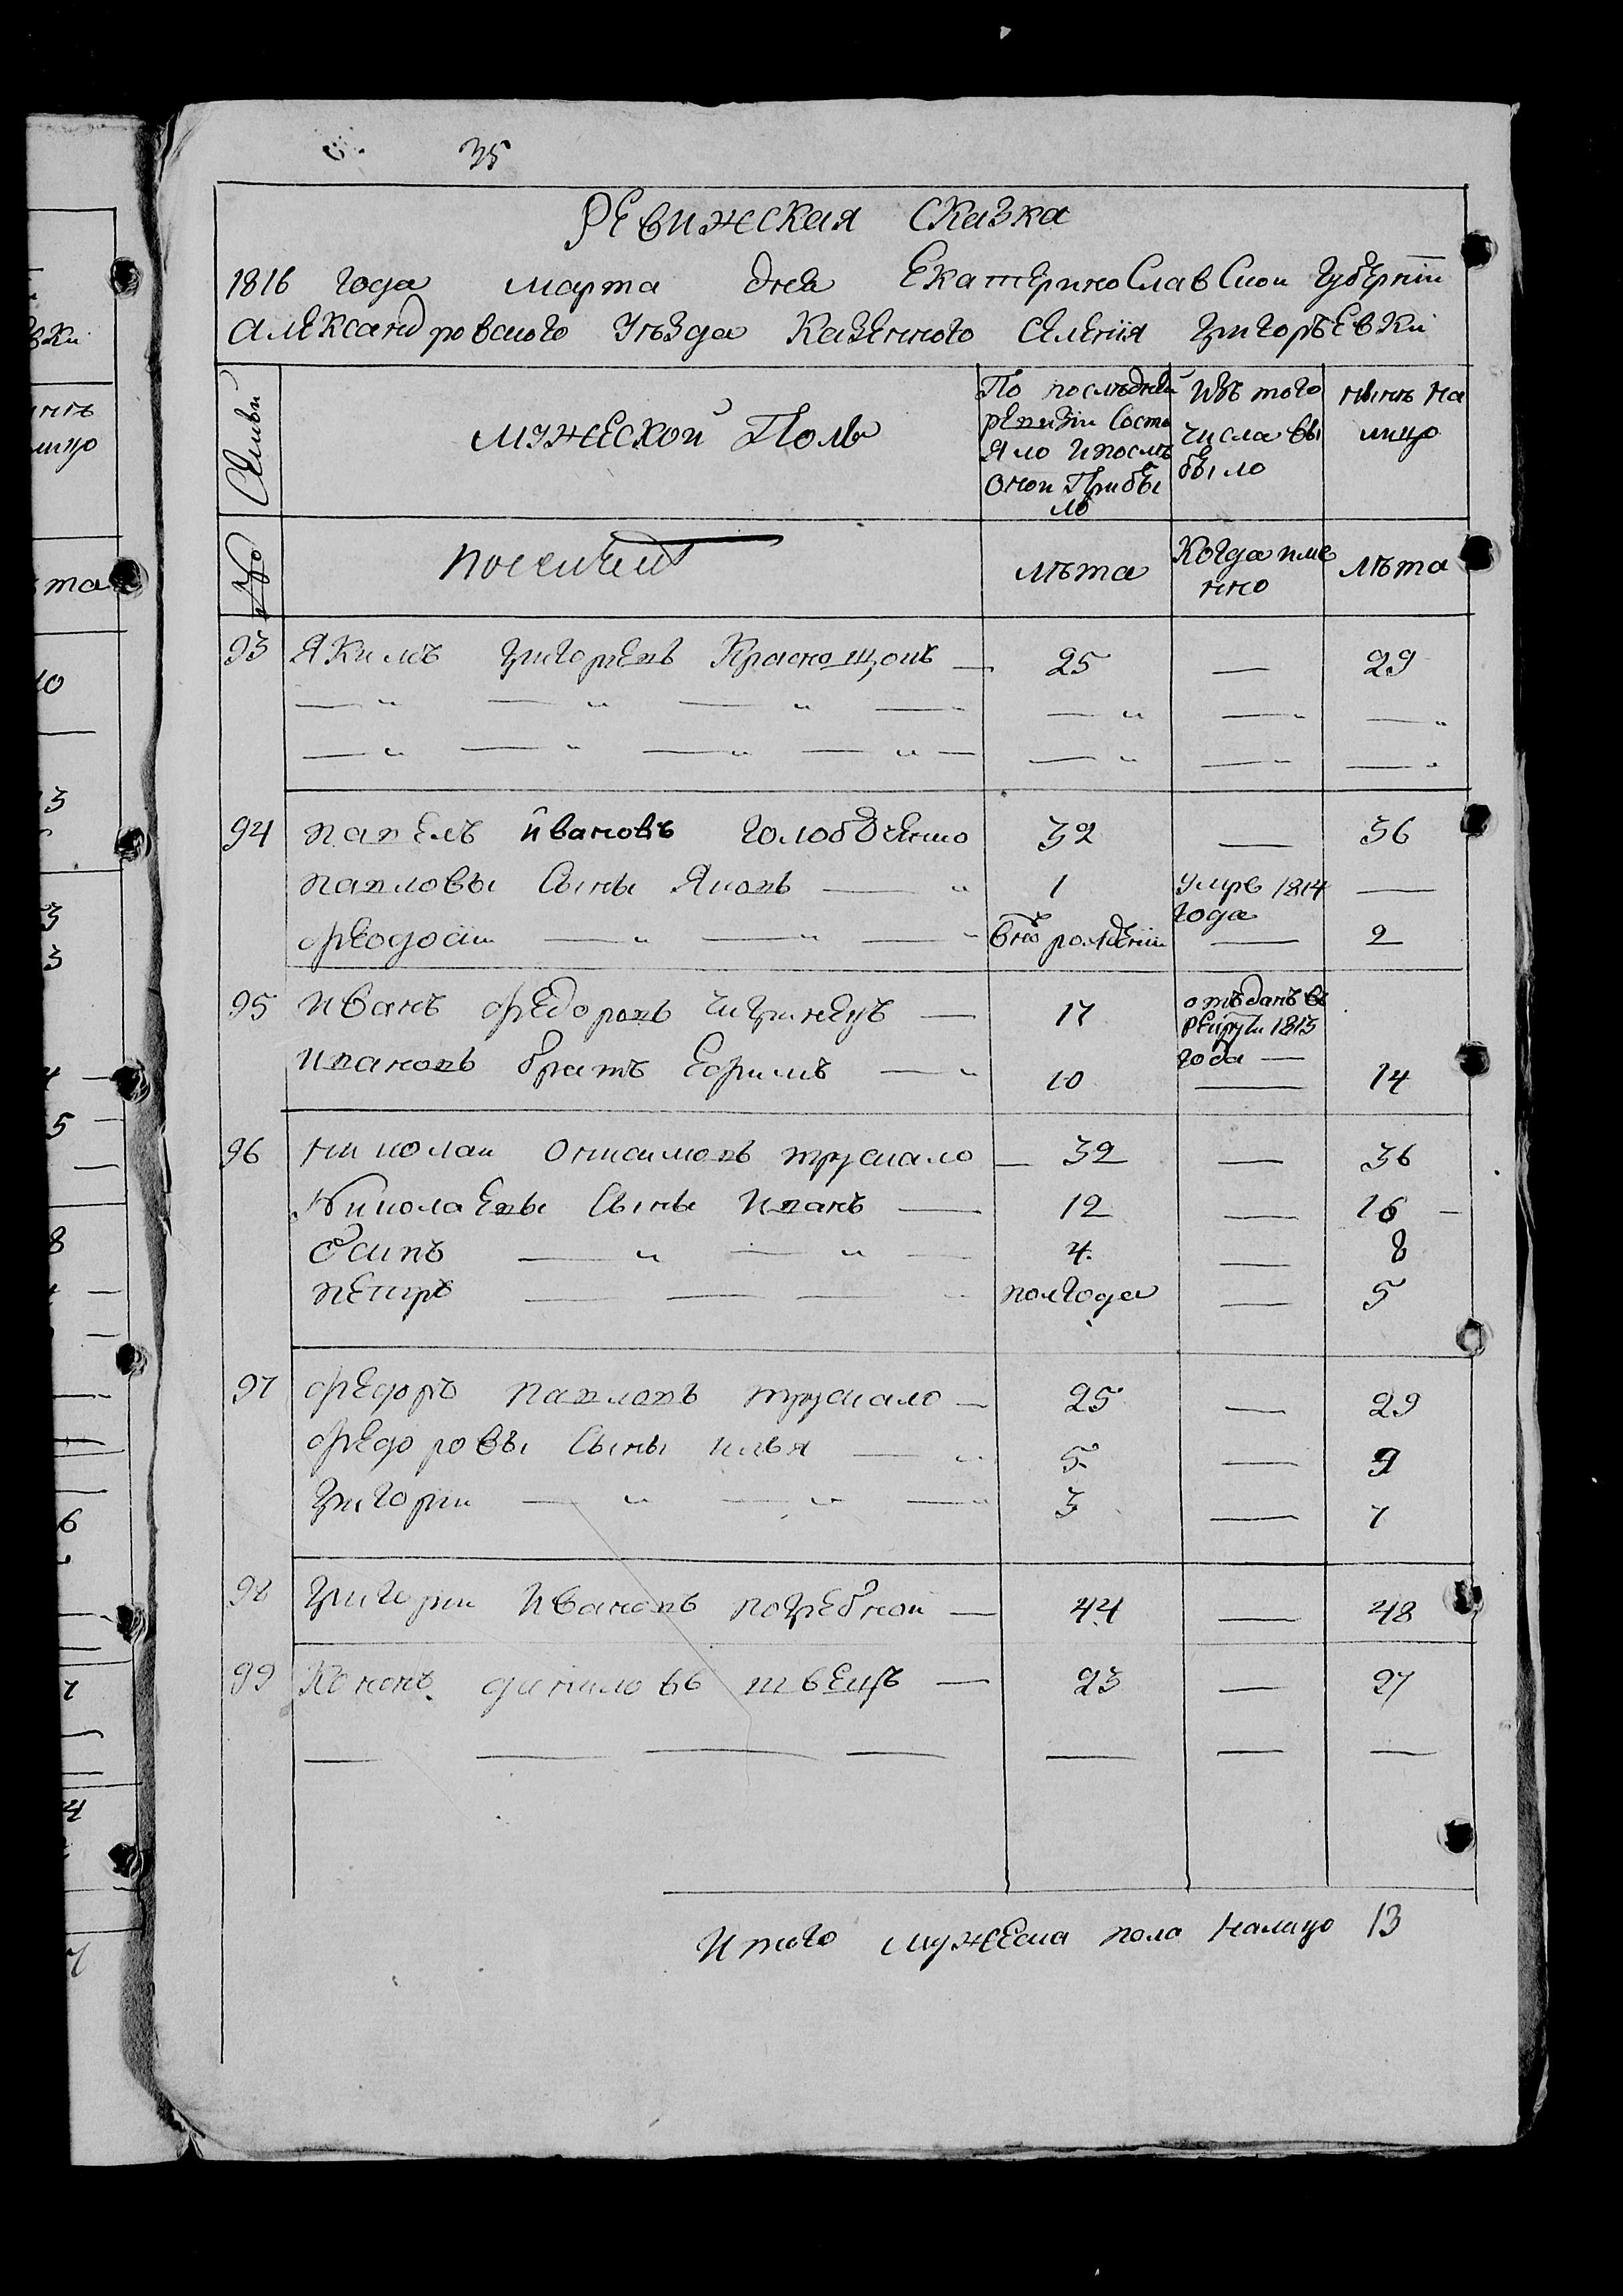 35
Ревижская сказка
1816 года марта дня Екатеринославской губернiи
Александровского уѣзда казенного селенiя григорьевки
Семьи
мужеской Полъ
По послѣдней ревизiи состояло и послѣ оной Прибыло
Изъ того числа выбыло
нынѣ на лицо
№
лѣта
Когда именно
лѣта
93 Якимъ григорьевъ Краснощокъ — 25 — 29
94 павелъ ивановъ голобоченко 32 — 36
павловы сыны Яковъ — 1 умре 1814 года —
феодосiи — вновь рожденiи — 2
95 иванъ федоровъ чигринецъ — 17 отъданъ въ рекруты 1813 года —
ивановъ братъ ефимъ — 10 — 14
96 николаи онисимовъ трускало — 32 — 36
Николаевы сыны иванъ — 12 — 16
Осипъ — 4 — 8
петръ — полгода — 5
97 федоръ павловъ трускало — 25 — 29
федоровы сыны илья — 5 — 9
григорiи — 3 — 7
98 григорiи ивановъ погребнои — 44 — 48
99 Кононъ даниловъ швецъ — 23 — 27
Итого мужеска пола налицо 13